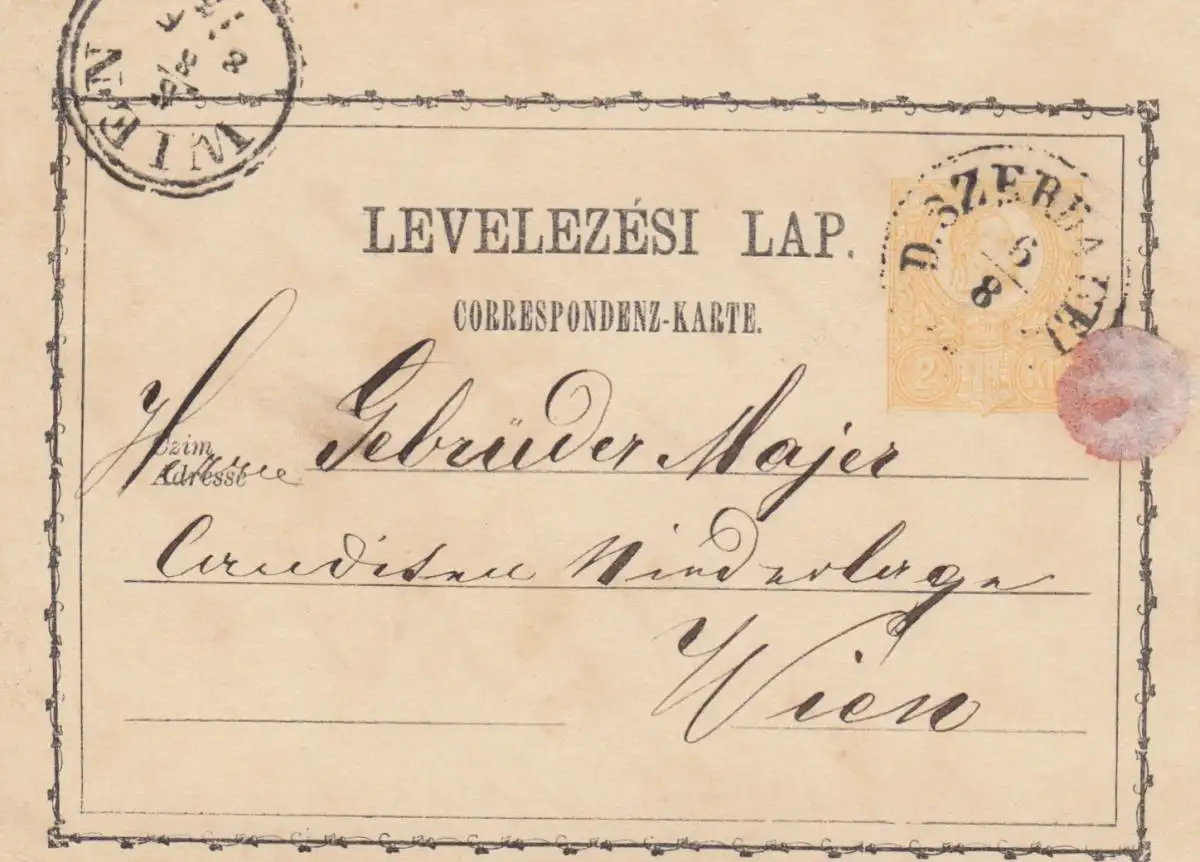 WIEN
8
8
D. SZERDAHELY
6/8
LEVELEZÉSI LAP.
CORRESPONDENZ-KARTE.
2 KR
Czim
Adresse
Herrn Gebrüder Majer
Canditen Niederlage
Wien